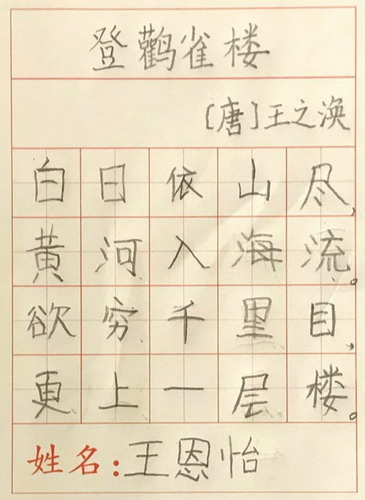 登鹳雀楼
[唐]王之涣
白日依山尽,
黄河入海流。
欲穷千里目,
更上一层楼。
姓名:王恩怡